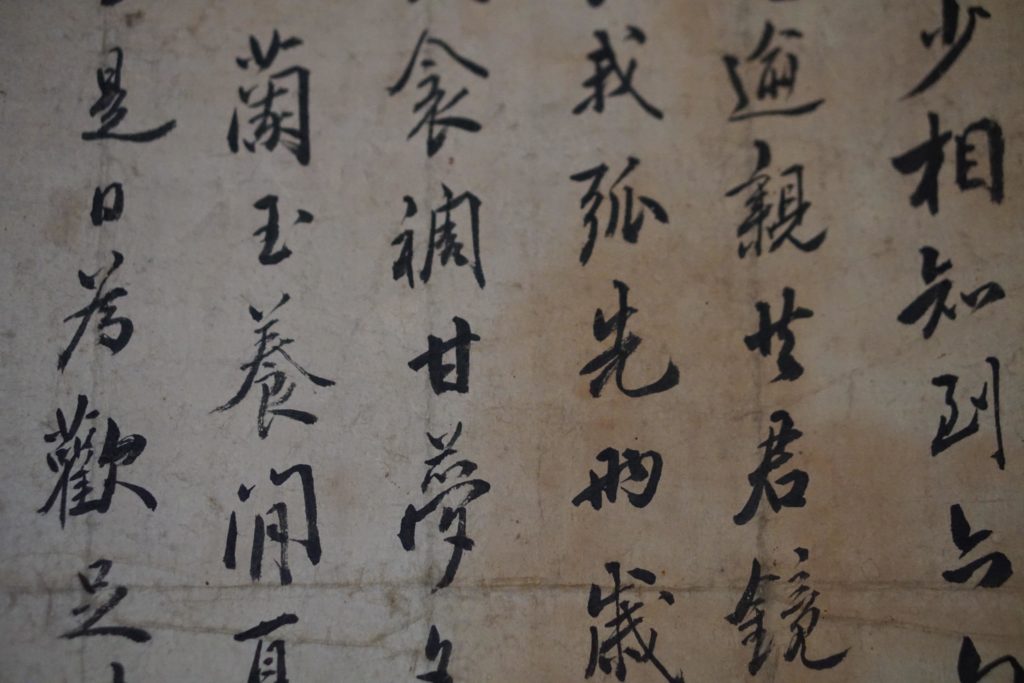 少相知到六
逾親共君鏡
我孤先兩歲
衾裯甘夢
蘭玉養閒
是日為歡足